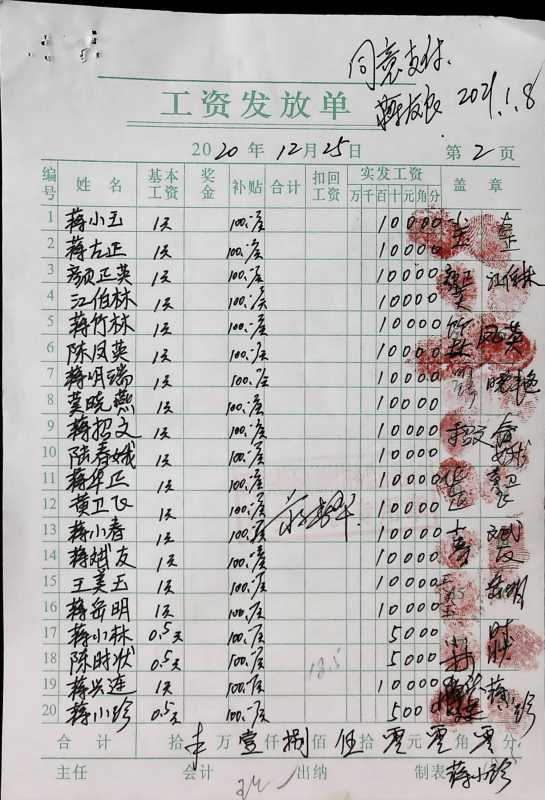 同意支付.
2021.1.8
工资发放单
2020年12月25日 第2页
编号 姓名 基本工资 奖金 补贴 合计 扣回工资 实发工资 盖章
万千百十元角分
1 蒋小玉 1天 100.-/天 10000
2 蒋左正 1天 100.-/天 10000
3 颜正英 1天 100.-/天 10000 江伯林
4 江伯林 1天 100.-/天 10000
5 蒋竹林 1天 100.-/天 10000 竹林
6 陈凤英 1天 100.-/天 10000 凤英
7 蒋明瑞 1天 100.-/天 10000
8 莫晓燕 1天 100.-/天 10000
9 蒋招文 1天 100.-/天 10000 招文
10 陆春娥 1天 100.-/天 10000 春娥
11 蒋华正 1天 100.-/天 10000 华正
12 黄卫飞 1天 100.-/天 10000 黄卫飞
13 蒋小春 1天 100.-/天 10000 小春
14 蒋斌友 1天 100.-/天 10000 斌友
15 王美玉 1天 100.-/天 10000
16 蒋岳明 1天 100.-/天 10000 岳明
17 蒋小林 0.5天 100.-/天 5000 小林
18 陈时状 0.5天 100.-/天 18.5 5000 时状
19 蒋兴连 1天 100.-/天 10000
20 蒋小珍 0.5天 100.-/天 5000 蒋小珍
合计 拾 万壹仟捌佰伍拾零元零角零分
主任 会计 出纳 制表 蒋小珍